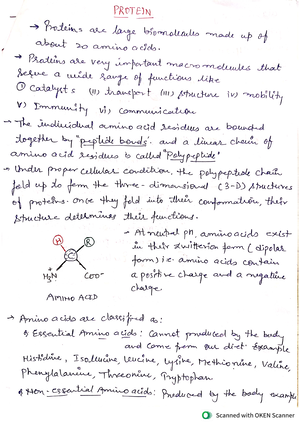 PROTEIN
→ Proteins are large biomolecules made up of
about 20 amino acids.
→ Proteins are very important macromolecules that
serve a wide range of functions like
i) Catalysts (ii) transport (iii) structure iv) mobility
v) Immunity vi) communication
- The individual amino acid residues are bounded
together by "peptide bonds". and a linear chain of
amino acid residues is called "Polypeptide"
- Under proper cellular condition, the polypeptide chain
fold up to form the three-dimensional (3-D) structures
of proteins. once they fold into their conformation, their
structure determines their functions.
- At neutral pH, amino acids exist
in their zwitterion form (dipolar
form) i.e amino acids contain
a positive charge and a negative
charge.
H R
C
H₃N⁺ COO⁻
AMINO ACID
→ Amino acids are classified as:
Essential Amino acids: Cannot produced by the body
and come from our diet. Example
Histidine, Isoleucine, Leucine, Lysine, Methionine, Valine,
Phenylalanine, Threonine, Tryptophan
Non-essential Amino Acids: Produced by the body example
Scanned with OKEN Scanner